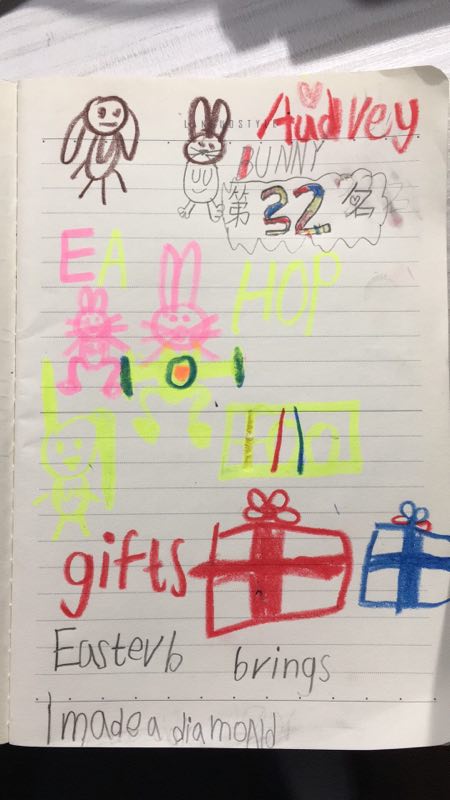 Audrey
BUNNY
第32名
EA
HOP
101
gifts
Easterb brings
I made a diamond